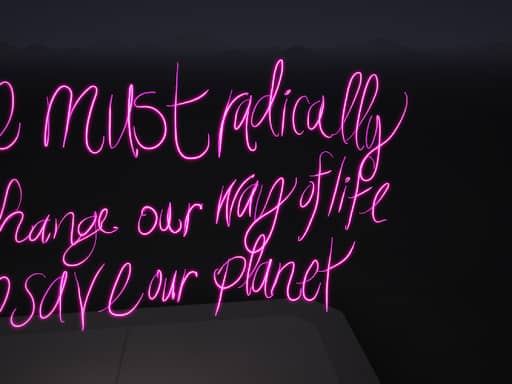 e must radically
hange our way of life
o save our planet